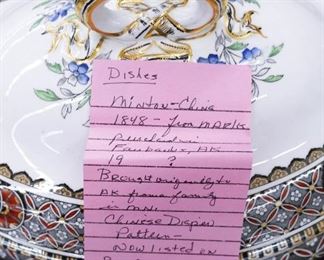 Dishes
Minton - China
1848 - from mark
Purchased in
Fairbanks, AK
19 ?
Brought originally to
AK from family
in MN.
Chinese Dragon
Pattern -
now listed on